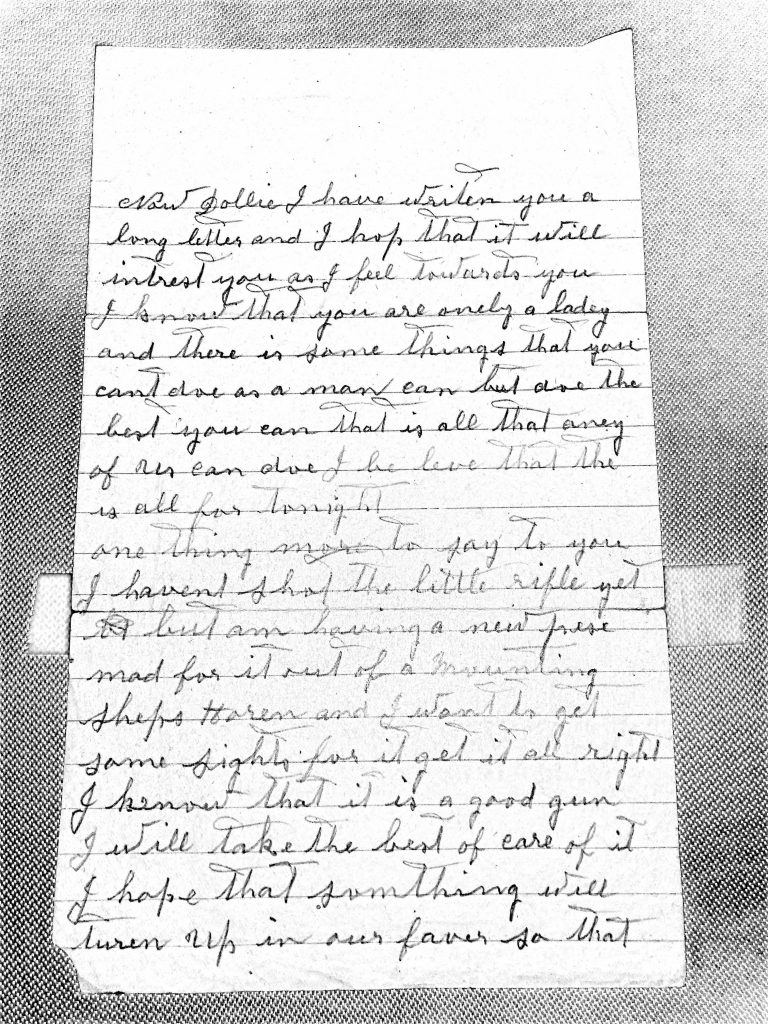 Now Dollie I have writen you a
long letter and I hop that it will
intrest you as I feel towards you
I know that you are onely a ladey
and there is some things that you
cant doe as a man can but doe the
best you can that is all that aney
of us can doe I be leve that the
is all for tonight
one thing more to say to you
I havent shot the little rifle yet
but am having a new pese
mad for it out of a Mounting
sheps Horen and I want to get
some sights for it get it all right
I know that it is a good gun
I will take the best of care of it
I hope that somthing will
turen up in our faver so that